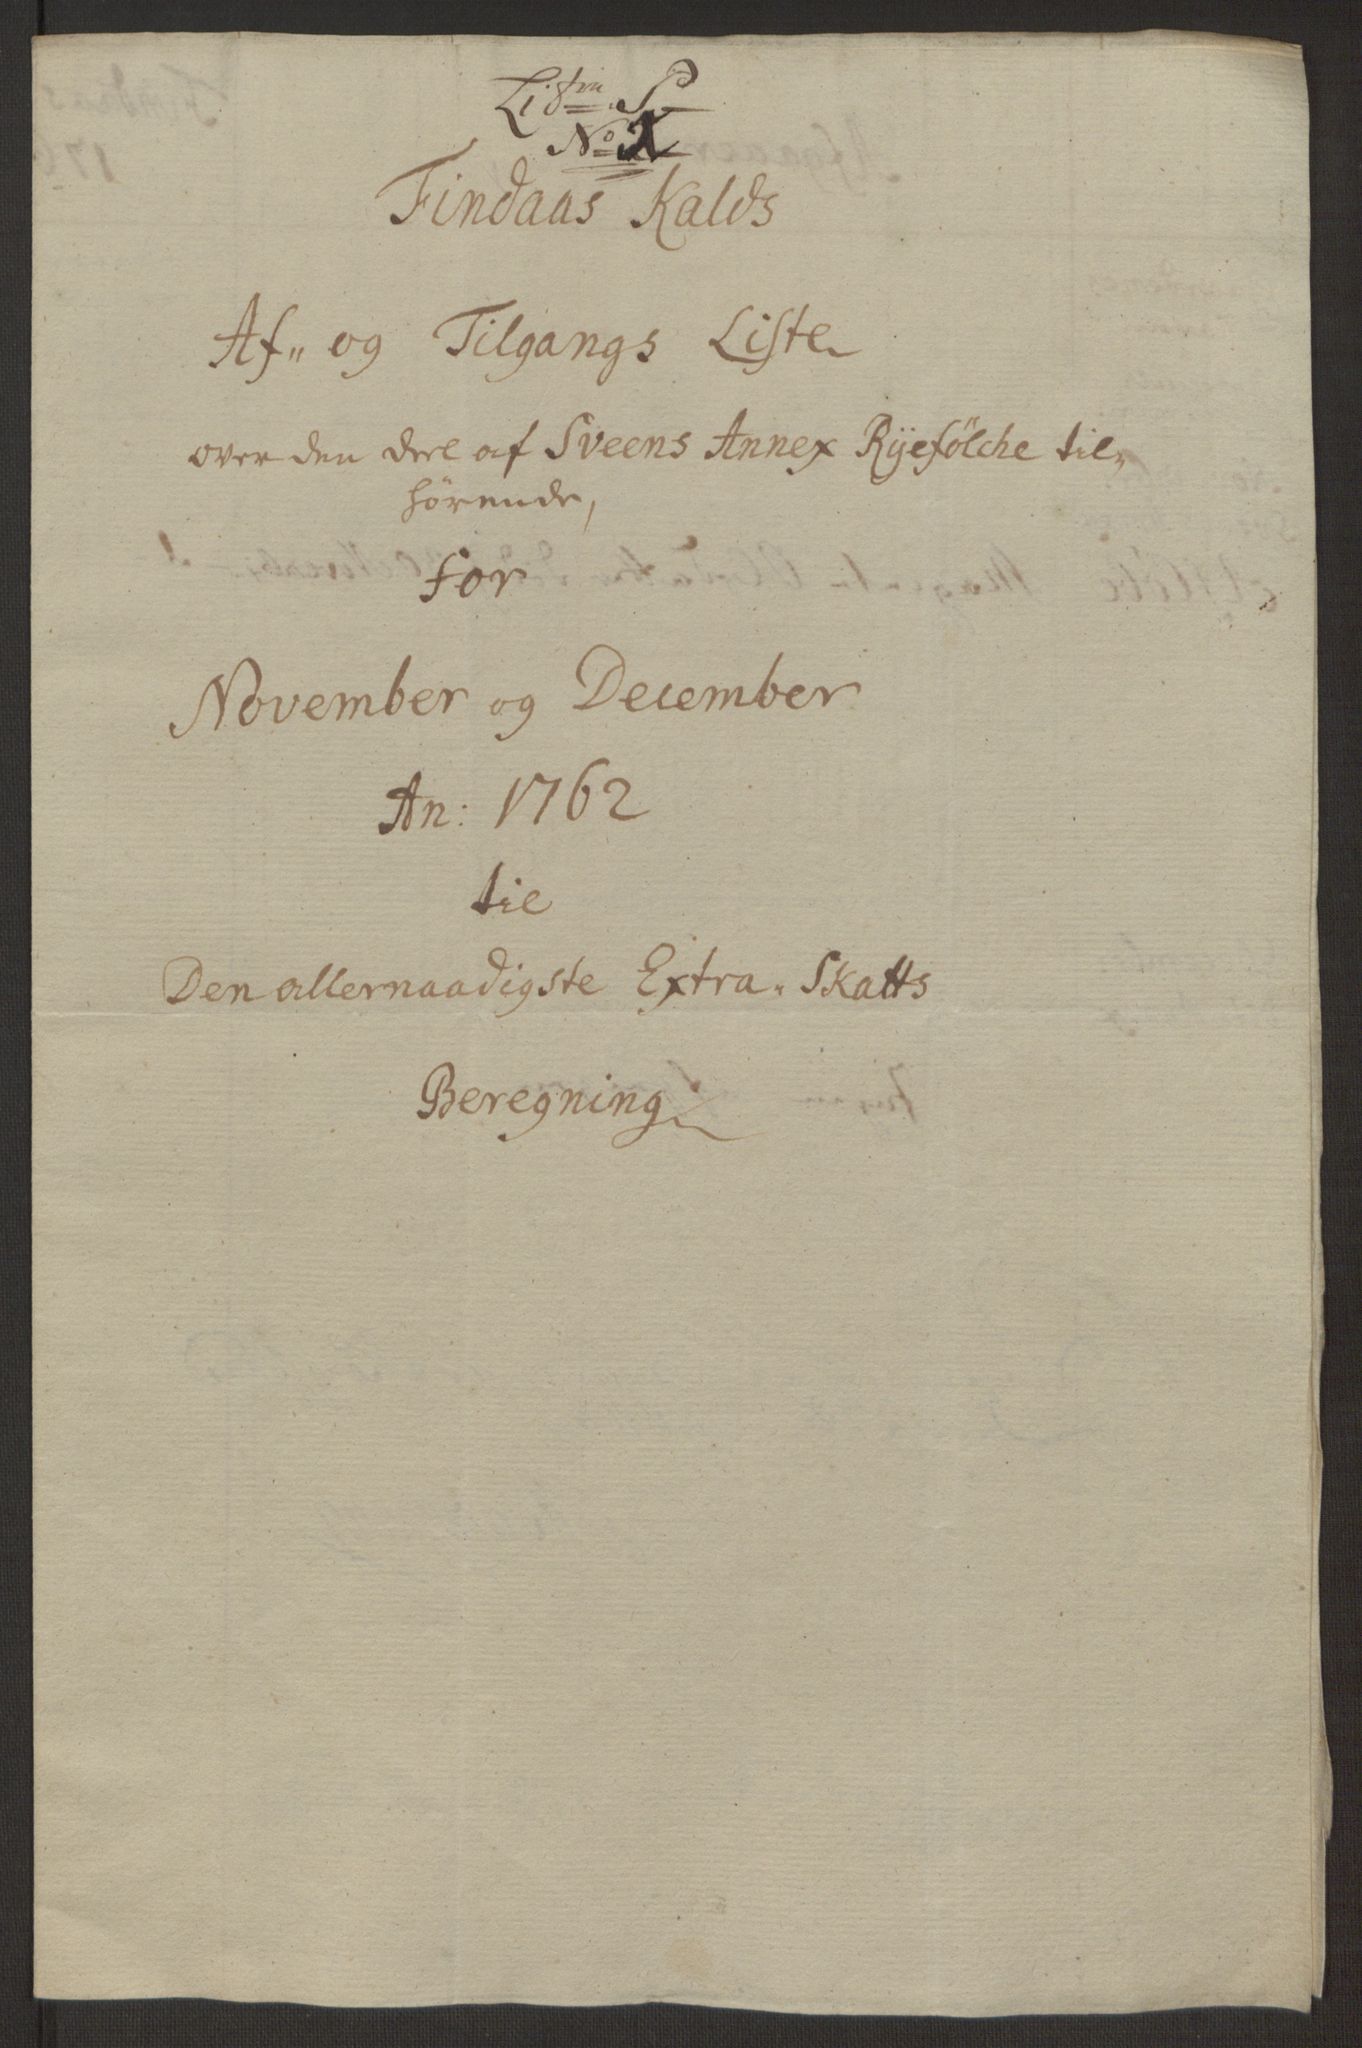 No
Findaas Kalds
Af„ og Tilgangs Liste
over den deel af Sveens Annex Rÿefÿlche til„
hørende,
for
November og December
An: 1762
til
Den allernaadigste Extra„ Skatts
Beregning